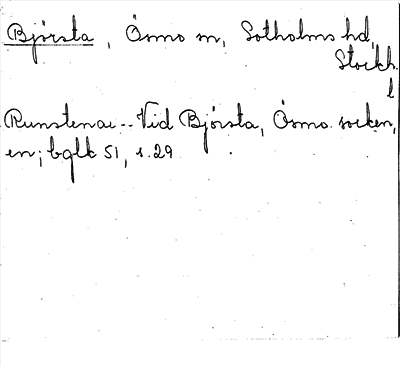 Bjørsta, Ösmo sn, Sotholms hd,
Stockh.
l
Runstenar -- Vid Bjørsta, Ösmo socken,
en; bglk 51, s. 29